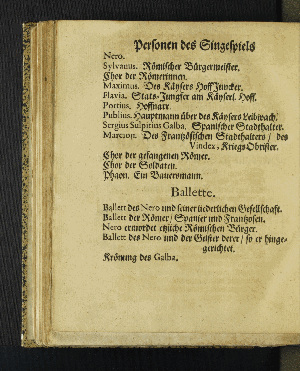 Personen des Singespiels
Nero.
Sylvanus. Römischer Bürgermeister.
Chor der Römerinnen.
Maximus. Des Käysers Hoff Juncker.
Flavia. Stats-Jungfer am Käyserl. Hoff.
Portius. Hoffnarr.
Publius. Hauptmann über des Käysers Leibwach.
Sergius Sulpitius Galba. Spanischer Stadthalter.
Marcion. Des Frantzösischen Stadthalters / des
Vindex, Kriegs Obrister.
Chor der gefangenen Römer.
Chor der Soldaten.
Phaon. Ein Bauersmann.
Ballette.
Ballett des Nero und seiner liederlichen Gesellschaft.
Ballett der Römer / Spanier und Frantzosen.
Nero ermordet etzliche Römischen Bürger.
Ballett des Nero und der Geister derer / so er hinge-
gerichtet.
Krönung des Galba.